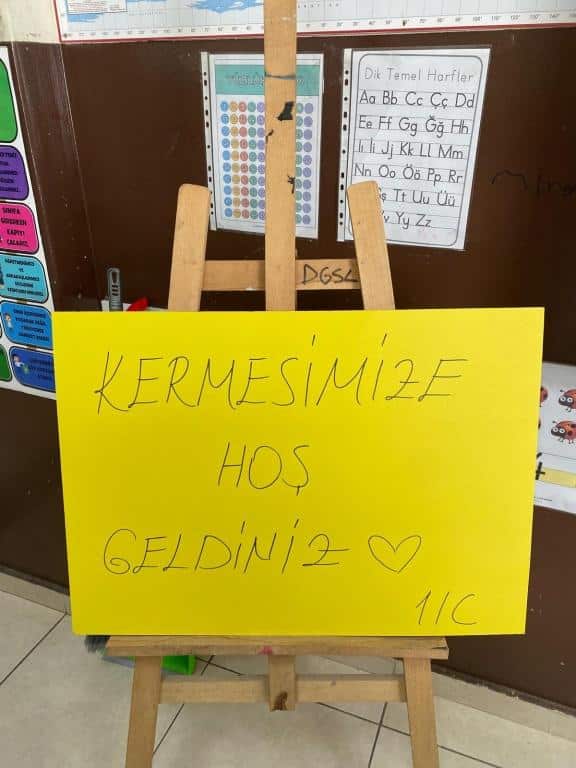 Dik Temel Harfler
Aa Bb Cc Çç Dd
Ee Ff Gg Ğğ Hh
Iı İi Jj Kk Ll Mm
Nn Oo Öö Pp Rr
Tt Uu Üü
Yy Zz
SINIFA
GİRERKEN
KAPIYI
ÇALARIZ.
DGSL
KERMESİMİZE
HOŞ
GELDİNİZ
1/C